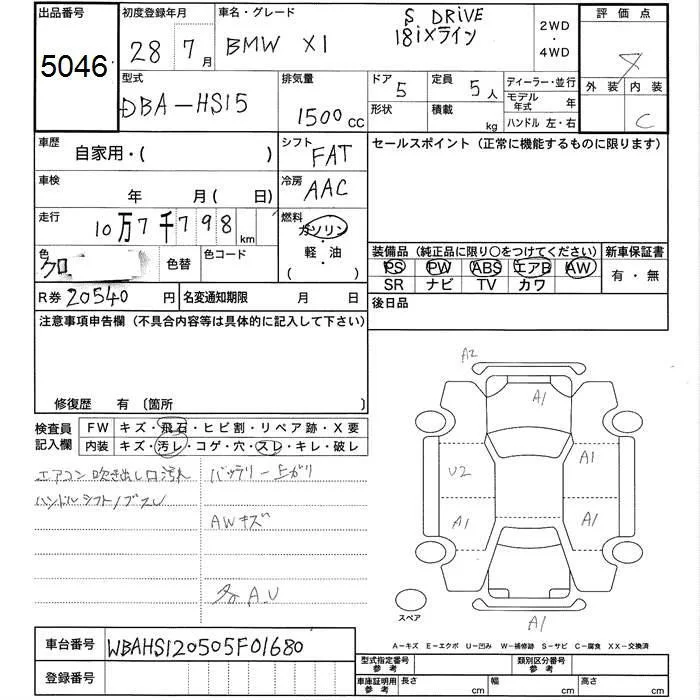 出品番号 初度登録年月 車名・グレード 評価点
5046 28 7月 BMW X1 S DRIVE 18iXライン 2WD・4WD
外装 内装
C
型式 排気量 ドア 定員 ディーラー・並行
DBA-HS15 1500cc 5 5人 モデル年式 年
形状 積載 kg ハンドル 左・右
車歴 自家用・( ) シフト FAT セールスポイント (正常に機能するものに限ります)
車検 年 月( 日) 冷房 AAC
走行 10万7千798km 燃料 ガソリン・軽・油・( )
色 クロ 色替 色コード
装備品 (純正品に限り○をつけてください) 新車保証書
PS PW ABS エアB AW 有・無
SR ナビ TV カワ
R券 20540円 名変通知期限 月 日 後日品
注意事項申告欄 (不具合内容等は具体的に記入して下さい)
修復歴 有 〔箇所
検査員記入欄 FW キズ・飛石・ヒビ割・リペア跡・X要
内装 キズ・汚レ・コゲ・穴・スレ・キレ・破レ
エアコン吹き出し口汚れ バッテリー上がり
ハンドルシフトノブスレ
AWキズ
各A.U
A2
A1
A1
U2
A1
A1
A1
スペア
A-キズ E-エクボ U-凹み W-補修跡 S-サビ C-腐食 XX-交換済
車台番号 WBAHS120505F01680
登録番号
型式指定番号参考 類別区分番号参考
車庫証明用参考 長さ cm 幅 cm 高さ cm